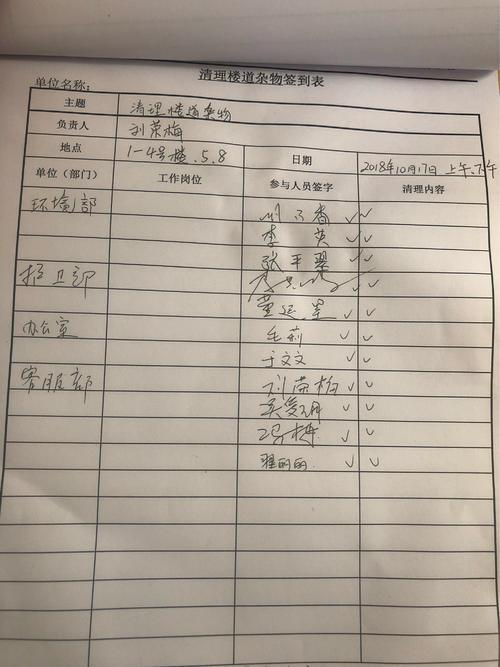 清理楼道杂物签到表
单位名称:
主题 清理楼道杂物
负责人 刘荣梅
地点 1-4号楼.5.8 日期 2018年10月17日 上午.下午
单位(部门) 工作岗位 参与人员签字 清理内容
环境部 香 √√
李英 √√
张平翠 √√
护卫部 √√
董运星 √√
办公室 毛莉 √√
于文文 √√
客服部 刘荣梅 √√
吴爱 √√
冯梅 √√
丽丽. √√